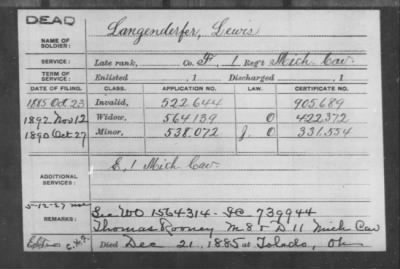 DEAD
NAME OF SOLDIER: Langenderfer, Lewis
SERVICE: Late rank, Co. F, 1 Reg't Mich. Cav.
TERM OF SERVICE: Enlisted , 1 Discharged , 1
DATE OF FILING. CLASS. APPLICATION NO. LAW. CERTIFICATE NO.
1885 Oct 23 Invalid, 522.644 905.689
1892 Nov 12 Widow, 564139 O 422,372
1890 Oct 27 Minor, 538,072 J. O 331.554
ADDITIONAL SERVICES: E, 1 Mich Cav.
5-12-27
REMARKS: See WO 1564314 - 739944
Thomas Rooney M 8 & D 11 Mich Cav
Died Dec 21, 1885 at Toledo, Oh